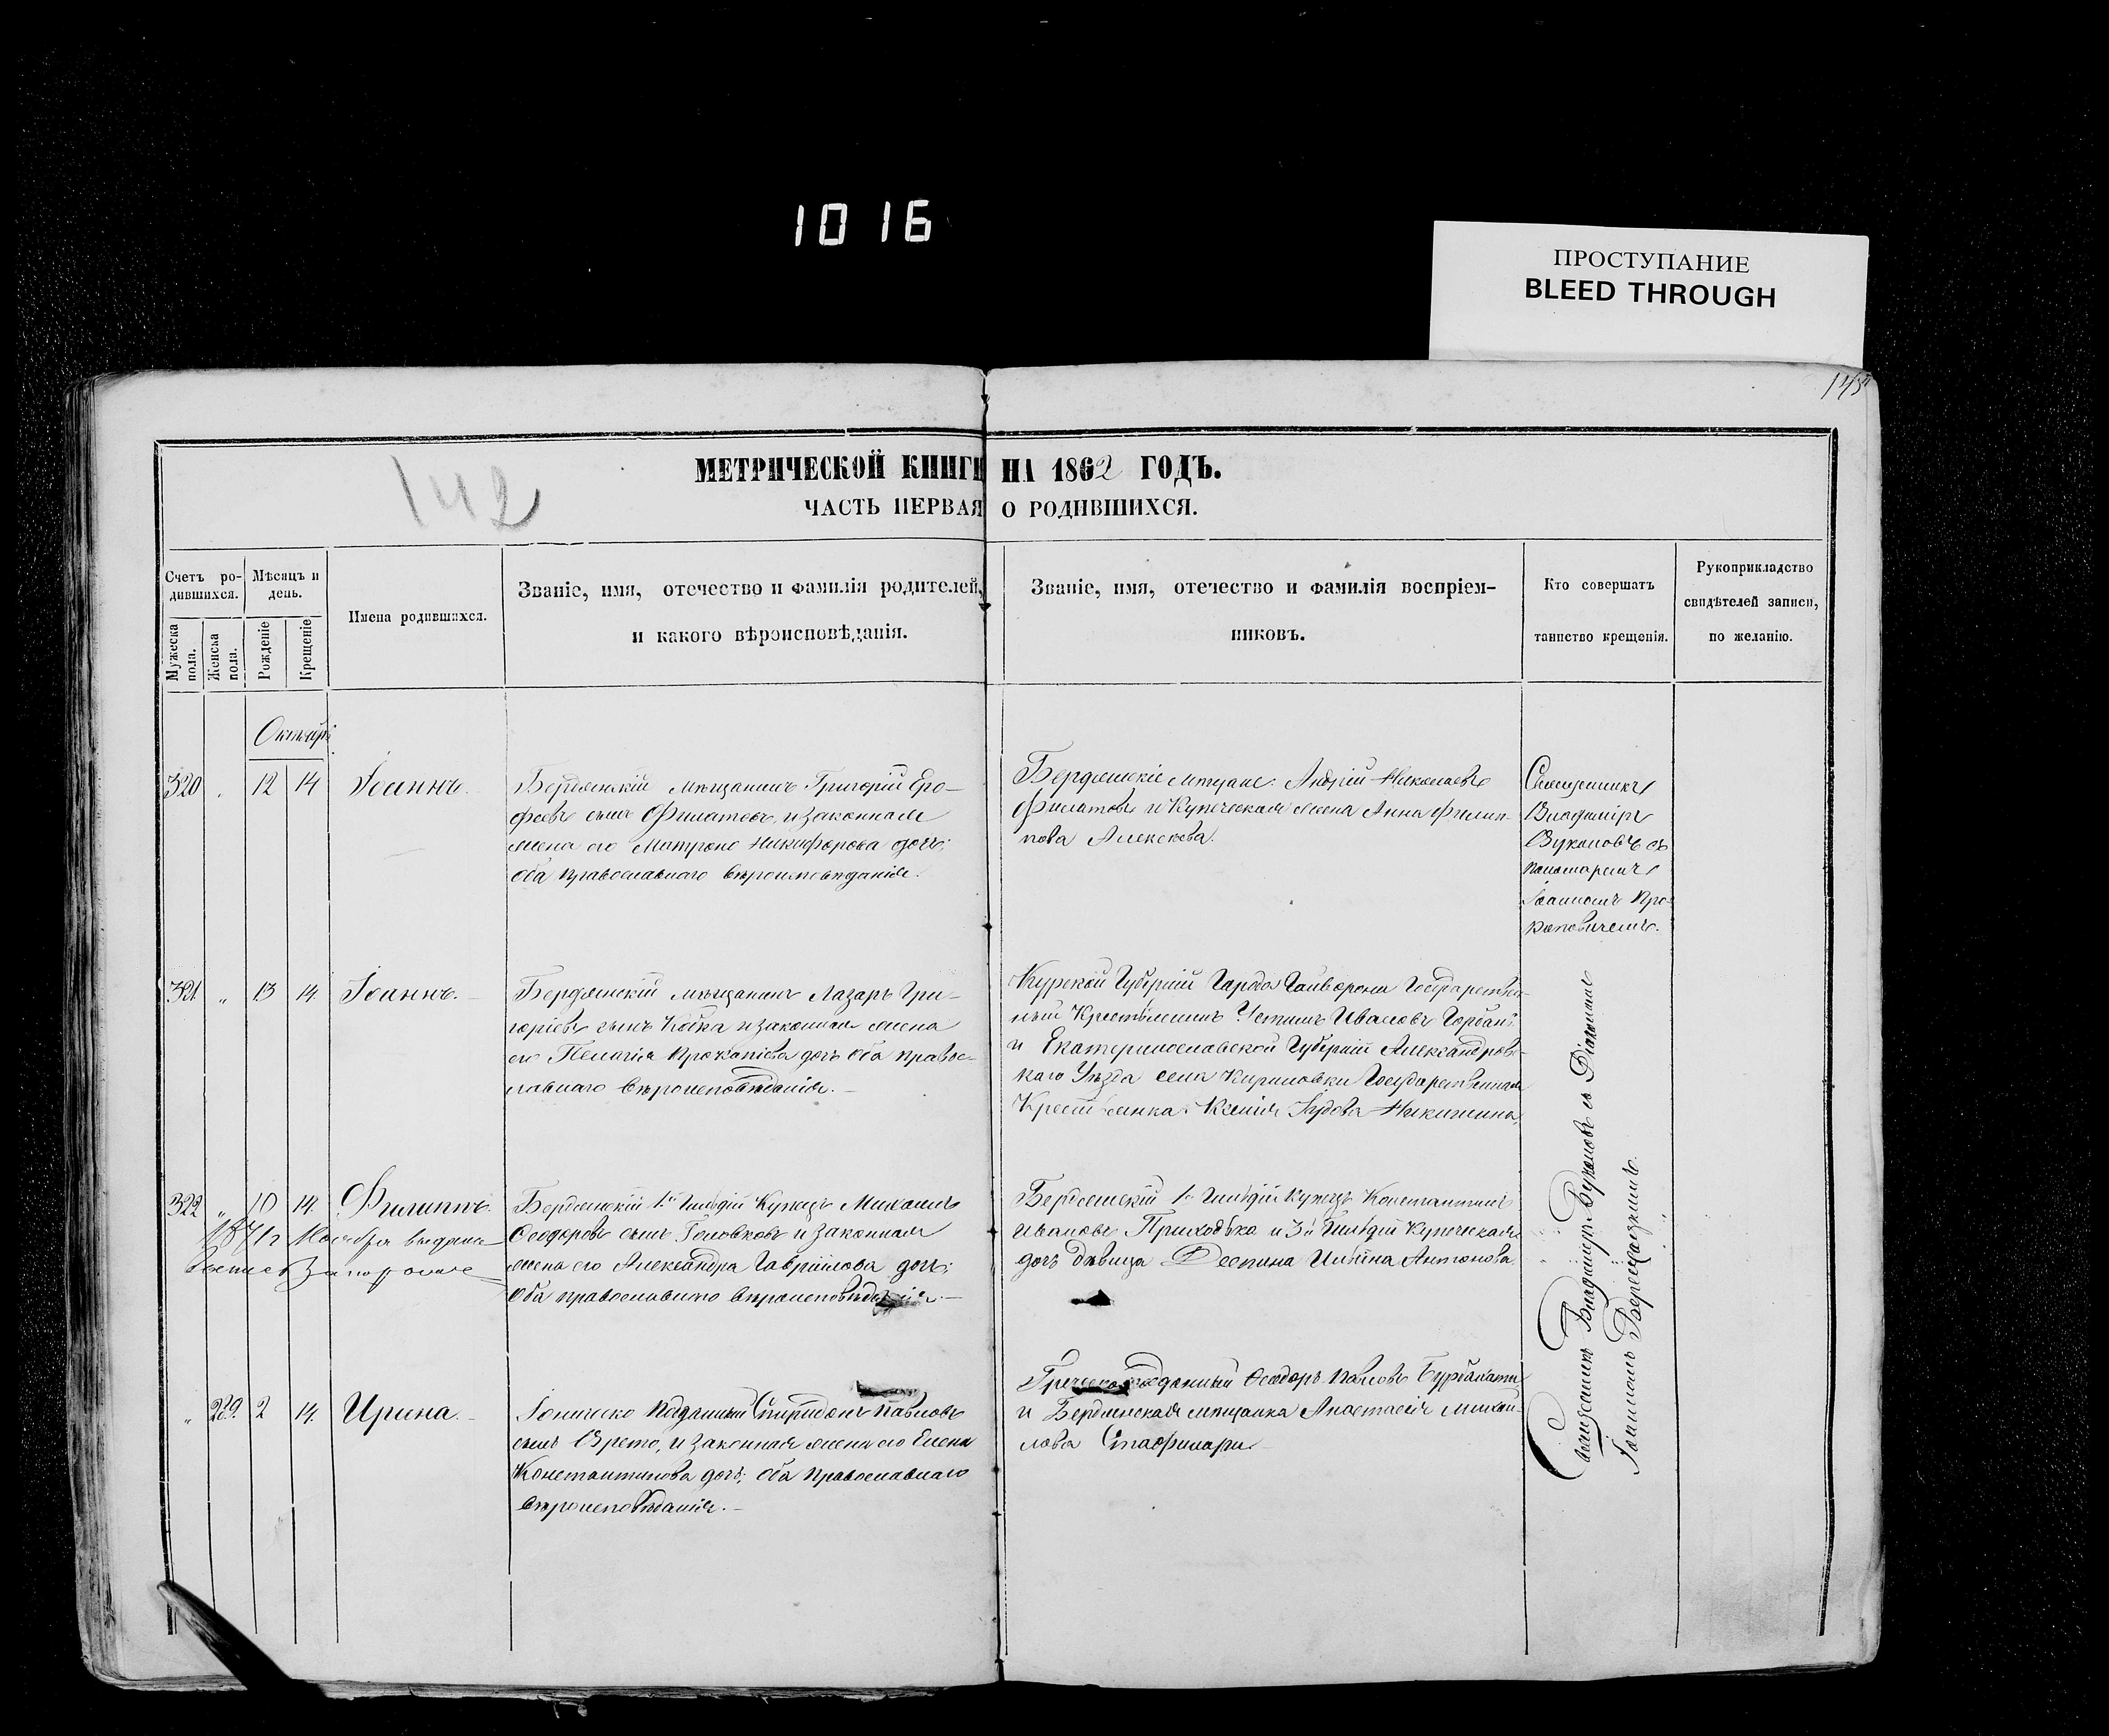 1016
ПРОСТУПАНИЕ
BLEED THROUGH
142
МЕТРИЧЕСКОЙ КНИГИ НА 1862 ГОДЪ.
ЧАСТЬ ПЕРВАЯ О РОДИВШИХСЯ.
Счетъ ро-
дившихся.
Мужеска
пола.
Женска
пола.
Мѣсяцъ и
день.
Рожденіе
Крещеніе
Имена родившихся.
Званіе, имя, отечество и фамилія родителей,
и какого вѣроисповѣданія.
Званіе, имя, отечество и фамилія воспріем-
никовъ.
Кто совершатъ
таинство крещенія.
Рукоприкладство
свидѣтелей записи,
по желанію.
320 12 14 Іоаннъ.
Бердянскій мѣщанинъ Григорій Еро-
феевъ сынъ Филатовъ и законная
жена его Матрона Никифорова дочь;
оба православнаго вѣроисповѣданія.
Бердянскіе мѣщане: Андрей Николаевъ
Филатовъ и Купеческая жена Анна Филип-
пова Алексѣева.
Священникъ
Владиміръ
Вукановъ съ
пономаремъ
Іоанномъ Про-
коповичемъ.
321 " 13 14 Іоаннъ.
Бердянскій мѣщанинъ Лазарь Гри-
горіевъ сынъ и законная жена
его Пелагія Прокопіева дочь оба правос-
лавнаго вѣроисповѣданія.
Курской Губерніи Города Государствен-
ный Крестьянинъ Устинъ Ивановъ
и Екатеринославской Губерніи Александровс-
каго Уѣзда села Кириловки Государственная
Крестьянка Ксенія Никитина.
322 " 10 14. Филиппъ.
1871 г Ноября выдана
Бердянскій 1й Гильдіи Купецъ Михаилъ
Ѳеодоровъ сынъ Головковъ и законная
жена его Александра Гавріилова дочь;
оба православнаго вѣроисповѣданія.
Бердянскій 1й Гильдіи купецъ Константинъ
Ивановъ Приходько и 3й Гильдіи Купеческая
дочь дѣвица Деспина Ильина Антонова.
Священникъ Владиміръ Вукановъ съ Діакономъ
Іоанномъ
" 229. 2 14. Ирина.
Іоническо подданный Спиридонъ Павловъ
сынъ и законная жена его Елена
Константинова дочь; оба православнаго
вѣроисповѣданія.
Греческоподданный Ѳеодоръ Павловъ
и Бердянская мѣщанка Анастасія Михаи-
лова